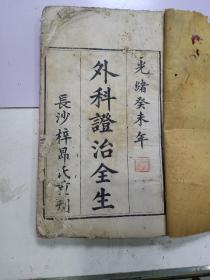 光緒癸未年
外科證治全生
長沙梓
刊